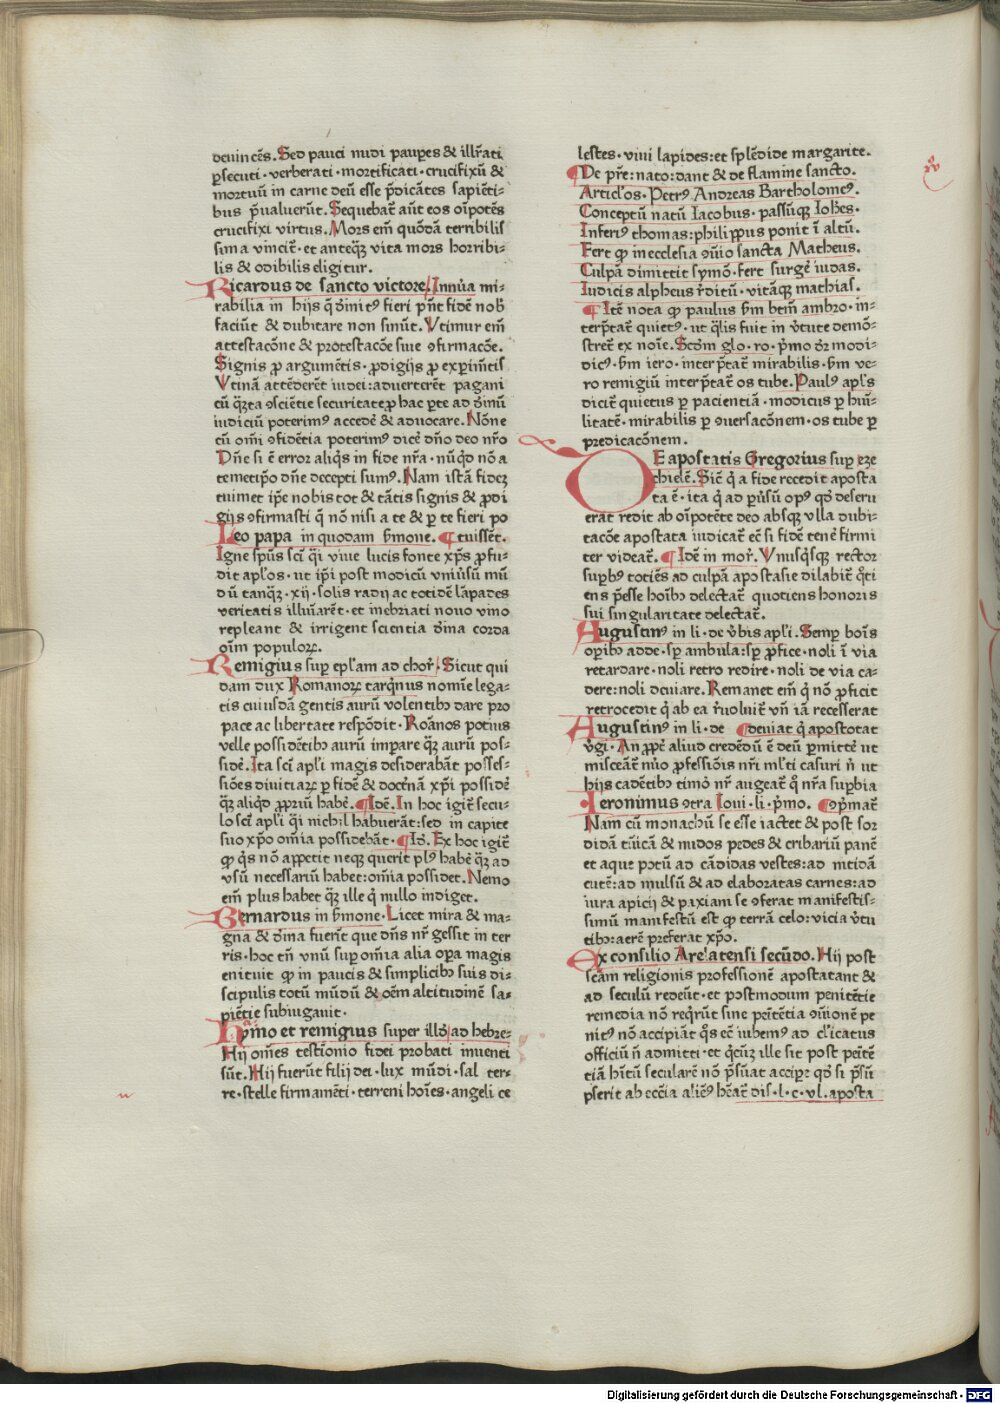 deuincẽs. Sed pauci nudi paupes & illr̃ati
ꝑsecuti · verberati · mortificati · crucifixũ &
mortuũ in carne deũ esse p̃dicãtes sapiẽti-
bus p̃ualuerũt. Sequebat̃ aũt eos oĩpotẽs
crucifixi virtus. Mors em̃ quõdã terribilis
sima vincit̃ · et anteq̃ꝫ vita mors horribi-
lis & odibilis eligitur.
Ricardus de sancto victore. Innũa mi-
rabilia in hijs q̃ dñitꝰ fieri pñt fidẽ nob̃
faciũt & dubitare non sinũt. Vtimur em̃
attestacõne & protestacõe siue ꝯfirmacõe.
Signis ꝓ argumẽtis · ꝓdigijs ꝓ experimẽtis
Vtinã attẽderẽt iudei: aduerterẽt pagani
cũ q̃ꝫta ꝯsciẽtie securitate ꝓ hac ꝑte ad diuinũ
iudiciũ poterimꝰ accedẽ & aduocare. Nõne
cũ om̃i ꝯfidẽtia poterimꝰ dicẽ dño deo nr̃o
Dñe si ẽ error aliq̃s in fide nr̃a · nũq̃d nõ a
temetip̃o dñe decepti sumꝰ. Nam istã fidez
tuimet ip̃e nobis tot & tãtis signis & ꝓdi
gijs ꝯfirmasti q̃ nõ nisi a te & ꝑ te fieri po
Leo papa in quodam ẜmone. ¶ tuissẽt.
Igne sp̃us sc̃i q̃i viue lucis fonte xp̃s ꝓfu-
dit ap̃los · ut ip̃i post modicũ vniũsũ mũ
dũ tanq̃ꝫ · xij · solis radij ac totidẽ lãpades
veritatis illuĩarẽt · et inebriati nouo vino
repleant & irrigent scientia diuina corda
oĩm populoꝝ.
Remigius suꝑ ep̃lam ad chor̃. Sicut qui
dam dux Romanoꝝ tarq̃nus nomĩe lega-
tis cuiusdã gentis aurũ volentibꝰ dare pro
pace ac libertate respõdit · Roãnos potius
velle possidẽtibꝰ aurũ imꝑare q̃ꝫ aurũ pos-
sidẽ. Ita sc̃i ap̃li magis desiderabãt posses-
siões diuitiaꝝ ꝑ fidẽ & doctĩnã xp̃i possidẽ
q̃ꝫ aliq̃d ꝓpriũ habẽ. ¶ Idẽ. In hoc igit̃ secu-
lo sc̃i ap̃li q̃i nichil habuerãt: sed in capite
suo xp̃o om̃ia possidebãt · ¶ Id. Ex hoc igit̃
ꝙ q̃s nõ appetit neqꝫ querit plꝰ habẽ q̃ꝫ ad
vsũ necessariũ habet: om̃ia possidet. Nemo
em̃ plus habet q̃ꝫ ille q̃ nullo indiget.
Bernardus in ẜmone · Licet mira & ma-
gna & diuina fuerĩt que dñs nr̃ gessit in ter
ris · hoc tñ vnũ suꝑ om̃ia alia oꝑa magis
enituit ꝙ in paucis & simplicibꝰ suis di-
scipulis totũ mũdũ & oẽm altitudinẽ sa-
piẽtie subiugauit ·
Haymo et remigius super illo ad hebre-
Hij om̃es testĩonio fidei probati inuenti
sũt. Hij fuerũt filij dei · lux mũdi · sal ter-
re · stelle firmamẽti · terreni hoĩes · angeli ce
lestes · viui lapides: et splẽdide margarite.
¶ De pr̃e: nato: dant & de flamine sancto.
Articl̃os. Petrꝰ Andreas Bartholomeꝰ.
Conceptũ natũ Iacobus · passũqꝫ Ioh̃es ·
Inferiꝰ thomas: philippus ponit ĩ altũ.
Fert ꝙ in ecclesia ꝯuiuo sancta Matheus.
Culpã dimittit symõ · fert surgẽ iudas.
Iudicis alpheus r̃ditũ · vitãqꝫ mathias.
¶ Itẽ nota ꝙ paulus ẜm btm̃ ambro · in-
terp̃tat̃ quietꝰ · ut q̃lis fuit in ṽtute demõ-
stret̃ ex noĩe. Scdm̃ glo · ro · p̃mo dr̃ modi-
dicꝰ · ẜm iero · interp̃tat̃ mirabilis · ẜm ve-
ro remigiũ interp̃tat̃ os tube. Paulꝰ apl̃s
dicit̃ quietus ꝑ pacientiã · modicus ꝑ hũi-
litatẽ · mirabilis ꝑ ꝯuersacõnem · os tube ꝑ
predicacõnem.
DE apostatis Gregorius suꝑ eze
chielẽ. Sic̃ q̃ a fide recedit aposta
ta ẽ · ita q̃ ad pũsũ opꝰ qd̃ deseru
erat redit ab oĩpotẽte deo absqꝫ vlla dubi-
tacõe apostata iudicat̃ ec̃ si fidẽ tenẽ firmi
ter videat̃. ¶ Idẽ in mor̃. Vnusq̃sqꝫ rector
suꝑbꝰ totiẽs ad culpã apostasie dilabit̃ q̃ti
ens p̃esse hoĩbꝰ delectat̃ quotiens honoris
sui singularitate delectat̃.
Augustinꝰ in li · de ṽbis ap̃li. Semꝑ boĩs
oꝑibꝰ adde · sꝑ ambula: sꝑ ꝓfice · noli ĩ via
retardare · noli retro redire · noli de via ca-
dere: noli deuiare. Remanet em̃ q̃ nõ ꝓficit
retrocedit q̃ ab ea r̃uoluit̃ vñ iã recesserat
Augustinꝰ in li · de ¶ deuiat q̃ apostotat
ṽgi · An ꝓpẽ aliud credẽdũ ẽ deũ ꝑmittẽ ut
misceãt̃ nũo ꝓfessiõis nr̃i ml̃ti casuri ñ ut
hijs cadẽtibꝰ timõ nr̃ augeat̃ q̃ nr̃a suꝑbia
Ieronimus ꝯtra Ioui · li · p̃mo. ¶ ꝯp̃mat̃
Nam cũ monachũ se esse iactet & post sor
didã tũicã & nudos pedes & cribariũ panẽ
et aque potũ ad cãdidas vestes: ad nitidã
cutẽ: ad mulsũ & ad elaboratas carnes: ad
iura apicij & paxiani se ꝯferat manifestis-
simũ manifestũ est ꝙ terrã celo: vicia ṽtu
tibꝰ: aerẽ preferat xp̃o.
Ex consilio Arelatensi secũdo. Hij post
scãm religionis professionẽ apostatant &
ad seculũ redeũt · et postmodum penitẽtie
remedia nõ req̃rũt sine peitẽtia ꝯuionẽ pe
nitꝰ nõ accipiãt q̃s ec̃ iubemꝰ ad cl̃icatus
officiũ ñ admitti · et q̃cũqꝫ ille sit post peitẽ
tiã h̃itũ secularẽ nõ p̃suat accipẽ qd̃ si p̃sũ
pserit ab ecc̃ia aliẽꝰ hẽat̃ dis · l · c · vl. aposta